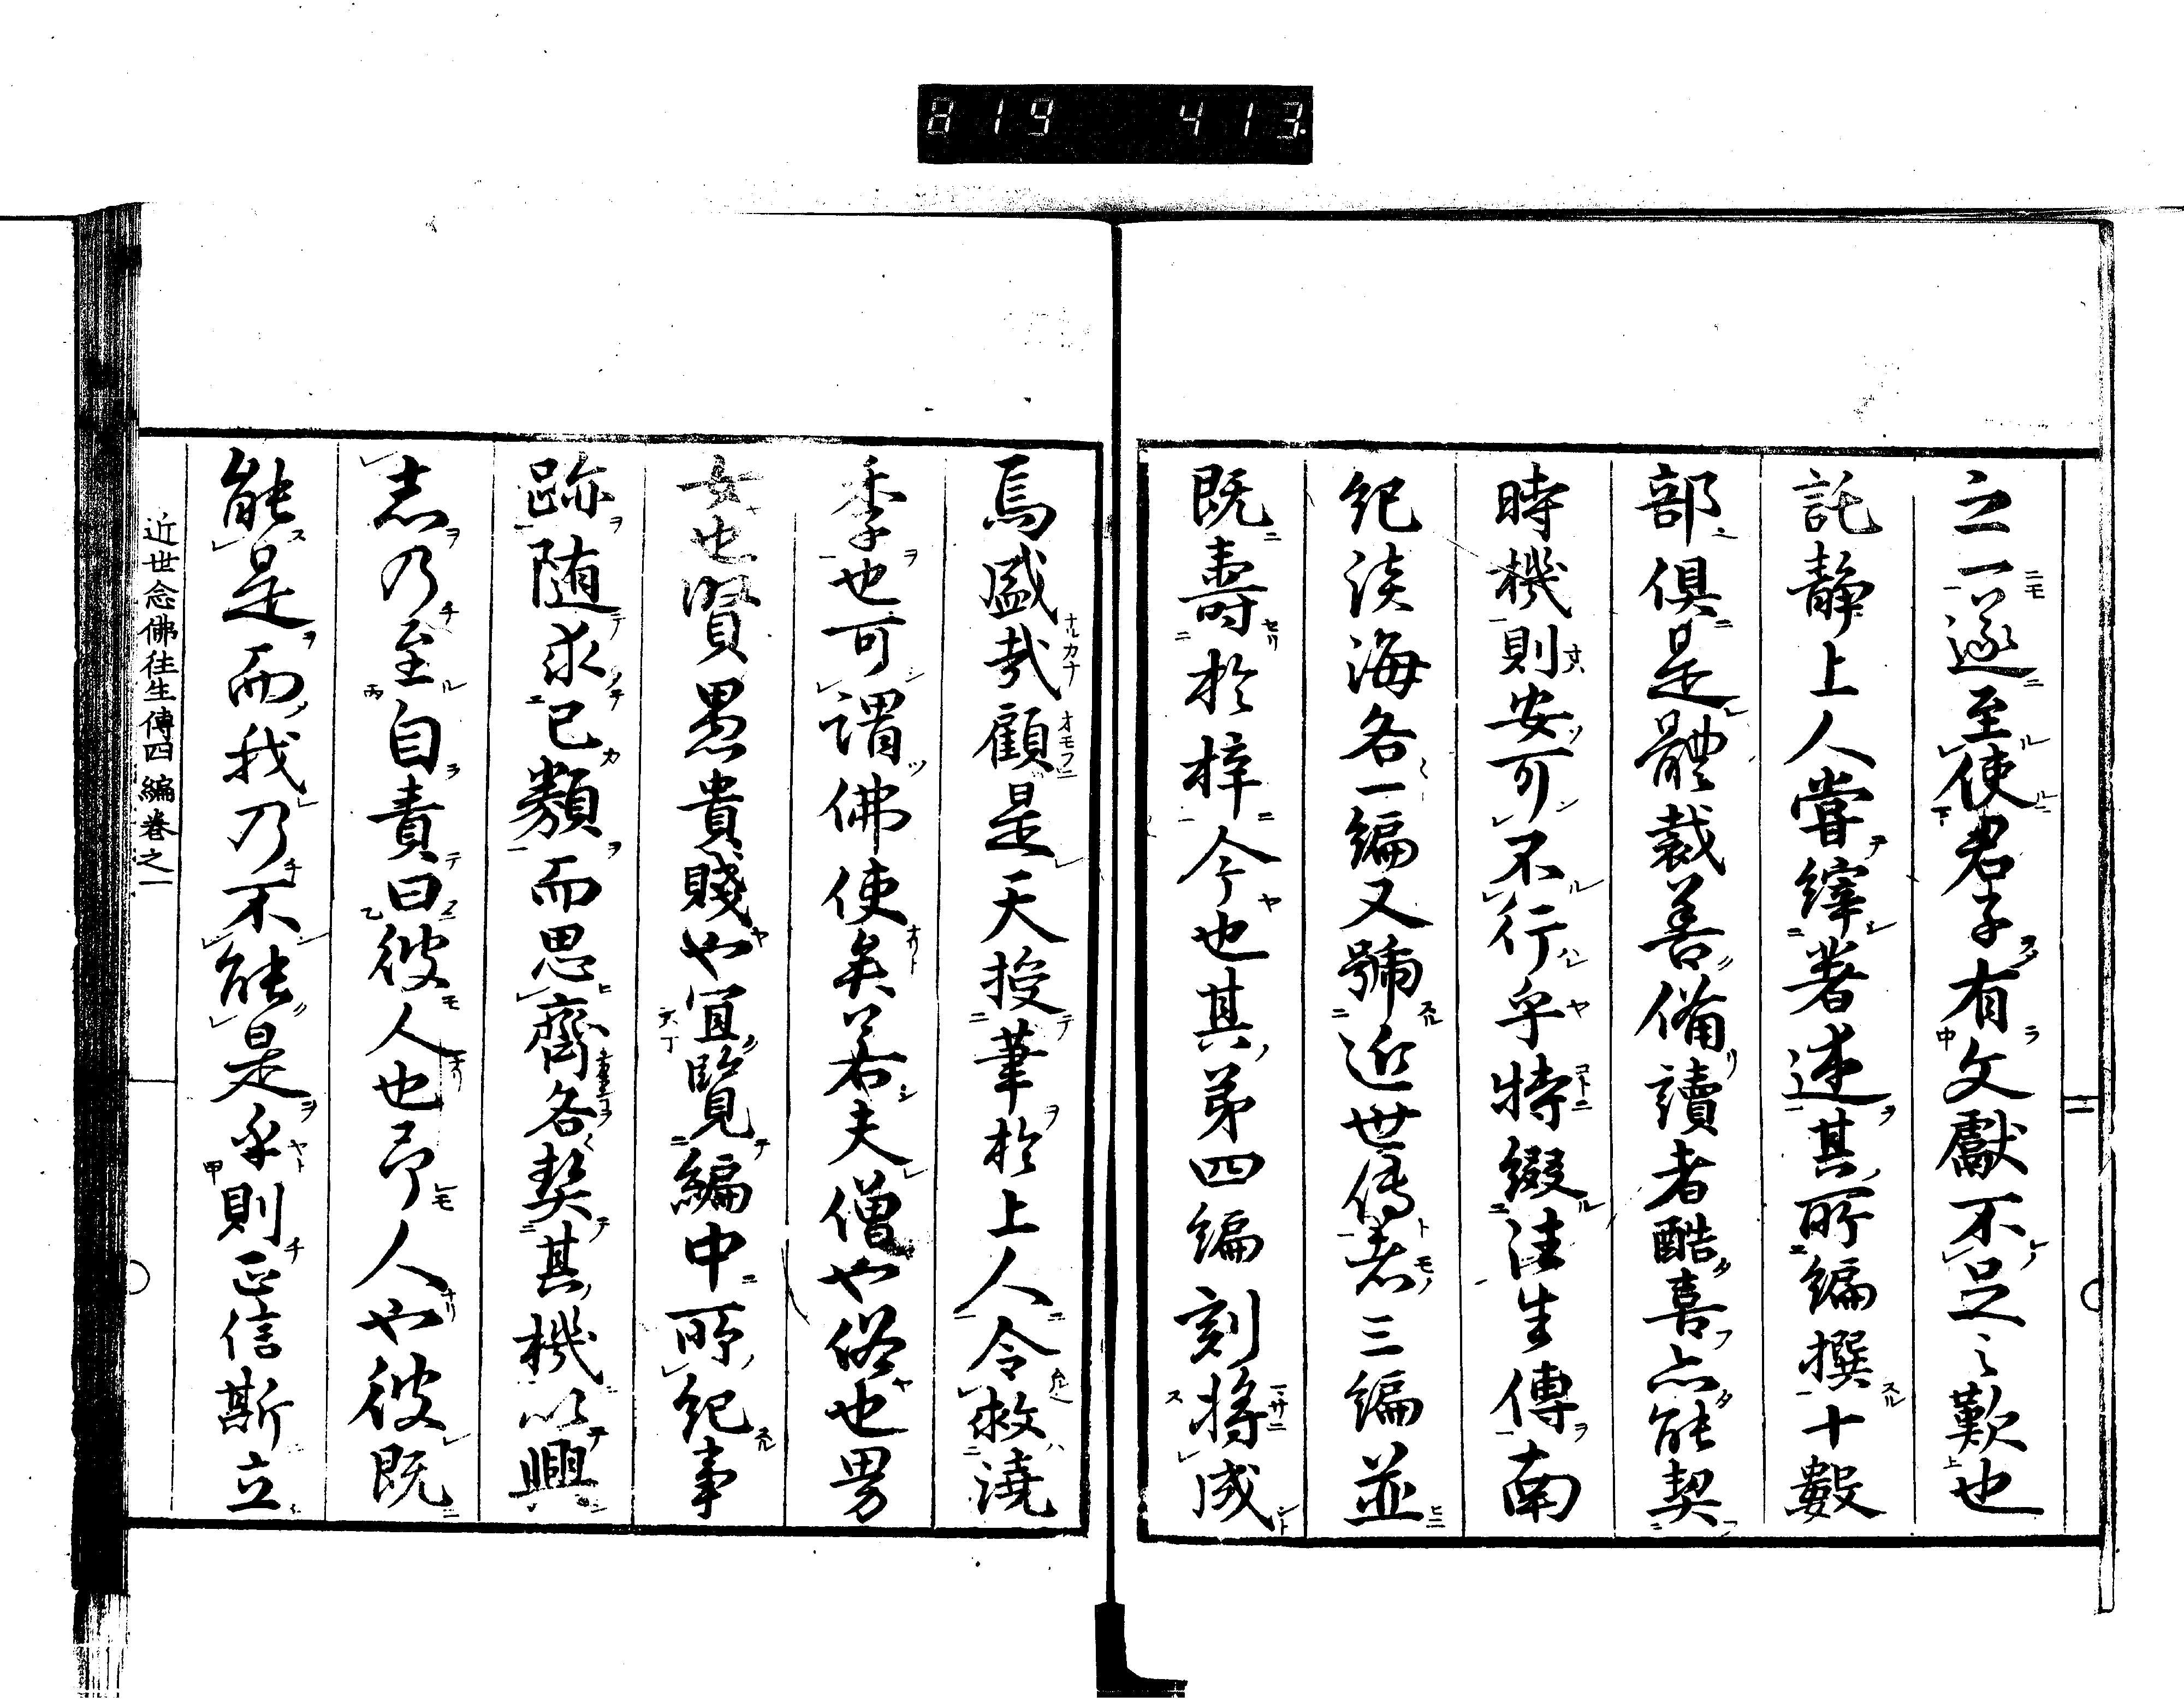 819 413
之一遂至使君子有文獻不足之歎也
託靜上人嘗繹著述其所編撰十數
部俱是體裁善備讀者酷喜亦能契
時機則安可不行乎特綴徃生傳南
紀淡海各一編又號近世傳者三編並
既壽於梓今也其第四編刻將成
焉盛哉顧是天授筆於上人令救澆
季也可謂佛使矣若夫僧也俗也男
女也賢愚貴賤也宜覽編中所紀事
跡随求已類而思齊各契其機以興
志乃至自責曰彼人也予人也彼既
能是而我乃不能是乎則正信斯立
近世念佛徃生傳四編卷之一